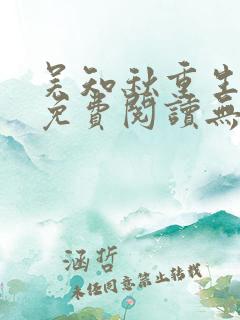 吴知秋重生
免費閱讀無
涵哲
未经同意禁止转载